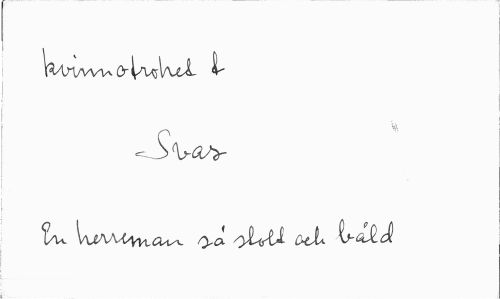 kvinnotrohet t
Svar
En herreman så stolt och båld